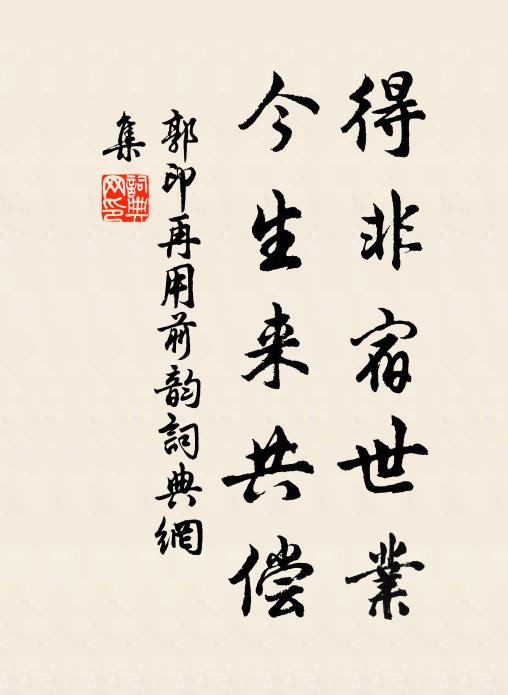 得非宿世業
今生来共偿
郭印再用前韵詞典網
集
詞典
网印